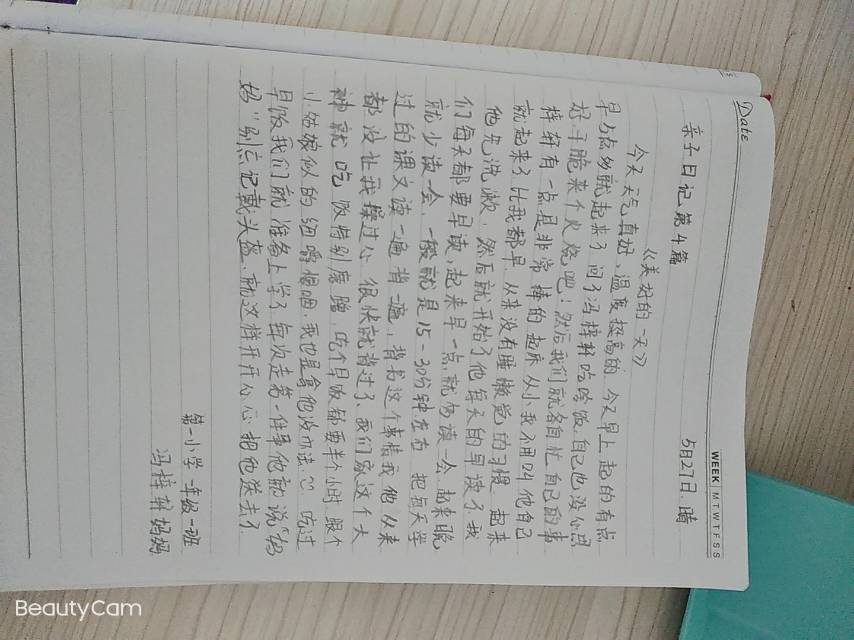 Date
WEEK M T W T F S S
亲子日记第4篇 5月27日.晴
《美好的一天》
今天天气真好,温度挺高的.今天早上起的有点
早6点多就起来了.问了冯梓轩吃啥饭.自己也没公思
好干脆来个火烧吧!然后我们就各自忙自己的事
梓轩有一点是非常棒的起床从小我不用叫他自己
就起来了比我都早.从来没有睡懒觉的习惯.起来
他先洗漱,然后就开始了他每天的早读了.我
们每天都要早读,起来早一点就多读一会.起来晚
就少读一会,一般就是15-30分钟左右.把每天学
过的课文读一遍背一遍,背书这个事情我他从来
都没让我操过心.很快就背过了.我们家这个大
神就吃饭特别磨蹭,吃个早饭都要半个小时.跟个
小姑娘似的细嚼慢咽.我也是拿他没办法.吃过
早饭我们就准备上学了.每次走第一件事他都说"妈
妈"别忘记戴头盔.就这样开开心心把他送去了.
第一小学一年级一班
冯梓轩妈妈
BeautyCam